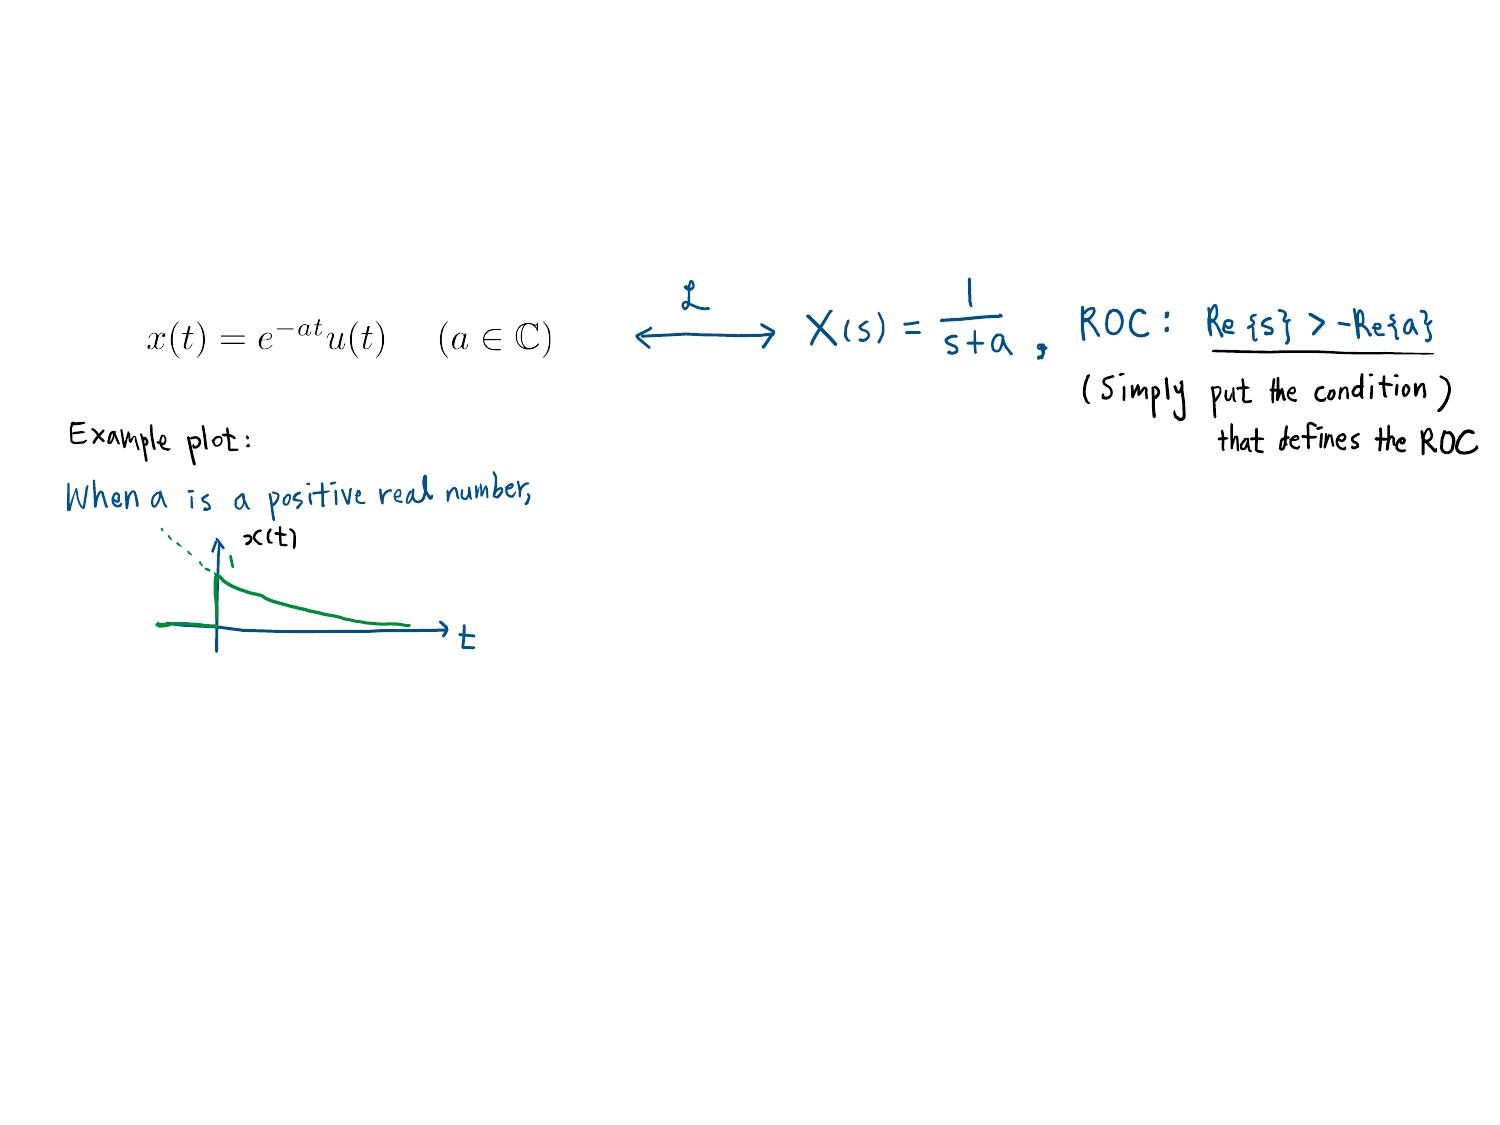 x(t) = e^{-at}u(t) (a ∈ ℂ) ℒ ⟷ X(s) = 1/(s+a), ROC: Re{s} > -Re{a}
(Simply put the condition)
that defines the ROC
Example plot:
When a is a positive real number,
x(t)
1
t